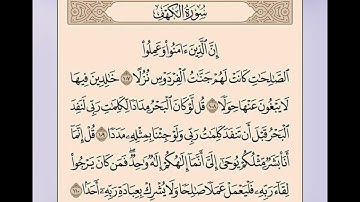 سُورَةُ الكَهۡفِ
إِنَّ ٱلَّذِينَ ءَامَنُواْ وَعَمِلُواْ
ٱلصَّٰلِحَٰتِ كَانَتۡ لَهُمۡ جَنَّٰتُ ٱلۡفِرۡدَوۡسِ نُزُلًا ١٠٧ خَٰلِدِينَ فِيهَا
لَا يَبۡغُونَ عَنۡهَا حِوَلٗا ١٠٨ قُل لَّوۡ كَانَ ٱلۡبَحۡرُ مِدَادٗا لِّكَلِمَٰتِ رَبِّي لَنَفِدَ
ٱلۡبَحۡرُ قَبۡلَ أَن تَنفَدَ كَلِمَٰتُ رَبِّي وَلَوۡ جِئۡنَا بِمِثۡلِهِۦ مَدَدٗا ١٠٩ قُلۡ إِنَّمَآ
أَنَا۠ بَشَرٞ مِّثۡلُكُمۡ يُوحَىٰٓ إِلَيَّ أَنَّمَآ إِلَٰهُكُمۡ إِلَٰهٞ وَٰحِدٞۖ فَمَن كَانَ يَرۡجُواْ
لِقَآءَ رَبِّهِۦ فَلۡيَعۡمَلۡ عَمَلٗا صَٰلِحٗا وَلَا يُشۡرِكۡ بِعِبَادَةِ رَبِّهِۦٓ أَحَدَۢا ١١٠